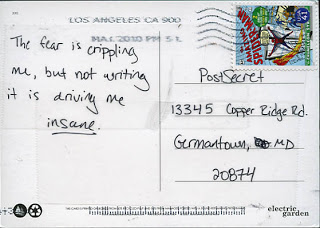 LOS ANGELES CA 900
MAY 2010 PM 5 L
The fear is crippling
me, but not writing
it is driving me
insane.
41
PostSecret
13345 Copper Ridge Rd.
Germantown, MD
20874
electric
garden